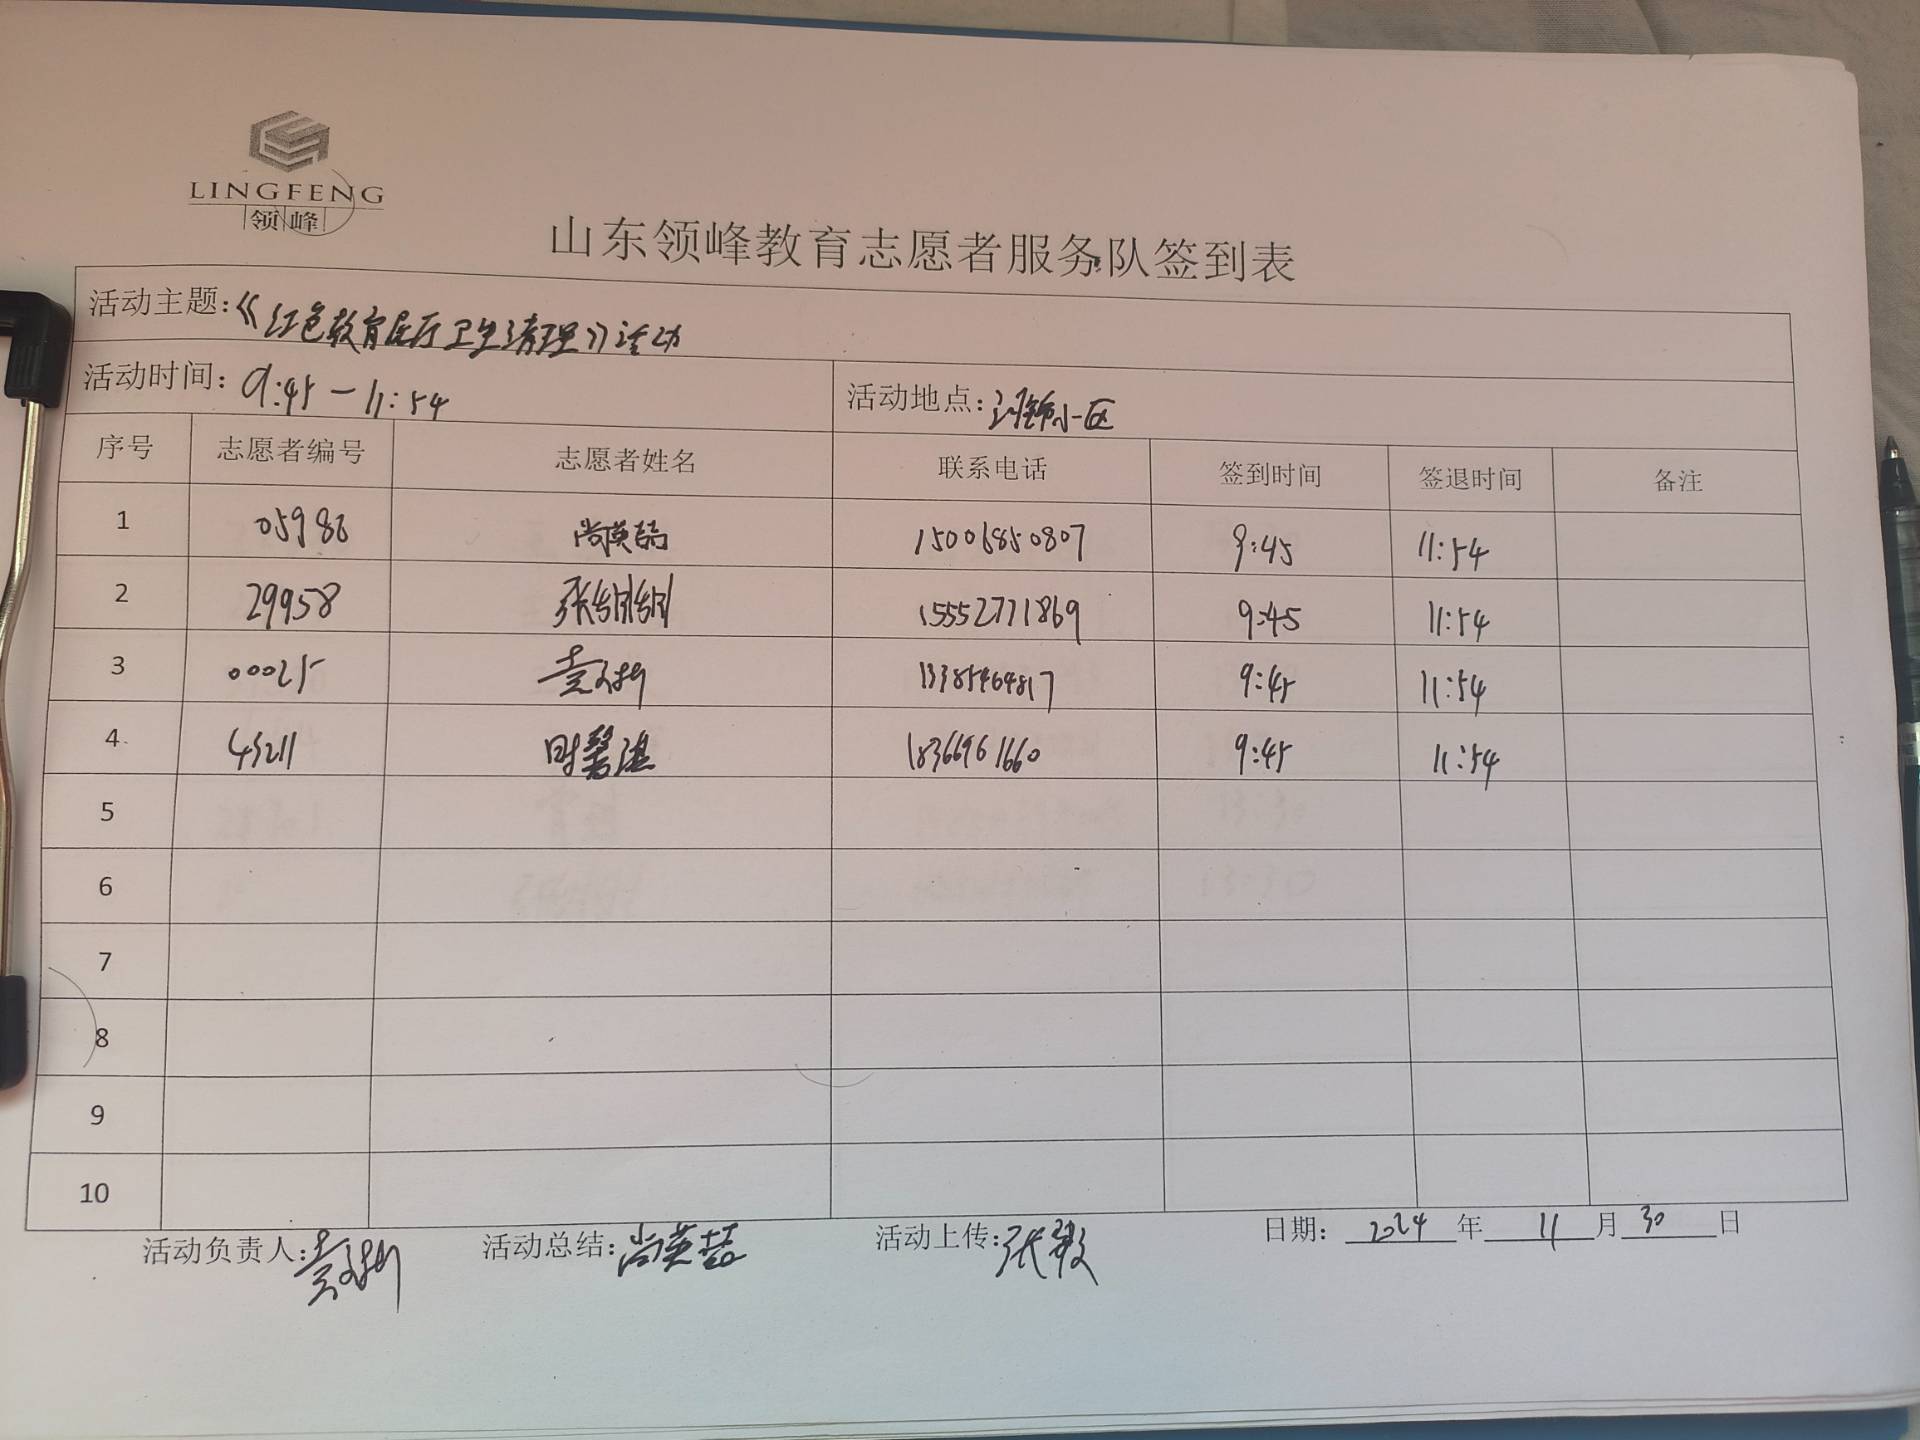 LINGFENG
领峰
山东领峰教育志愿者服务队签到表
活动主题:《红色教育展厅卫生清理》活动
活动时间: 9:45 — 11:54 活动地点: 小区
序号 志愿者编号 志愿者姓名 联系电话 签到时间 签退时间 备注
1 05986 尚英喆 15006850807 9:45 11:54
2 29958 张 15552771869 9:45 11:54
3 00025 袁 13385464817 9:45 11:54
4 45211 时馨湛 18366961660 9:45 11:54
5
6
7
8
9
10
活动负责人: 袁 活动总结: 尚英喆 活动上传: 张毅 日期: 2024 年 11 月 30 日